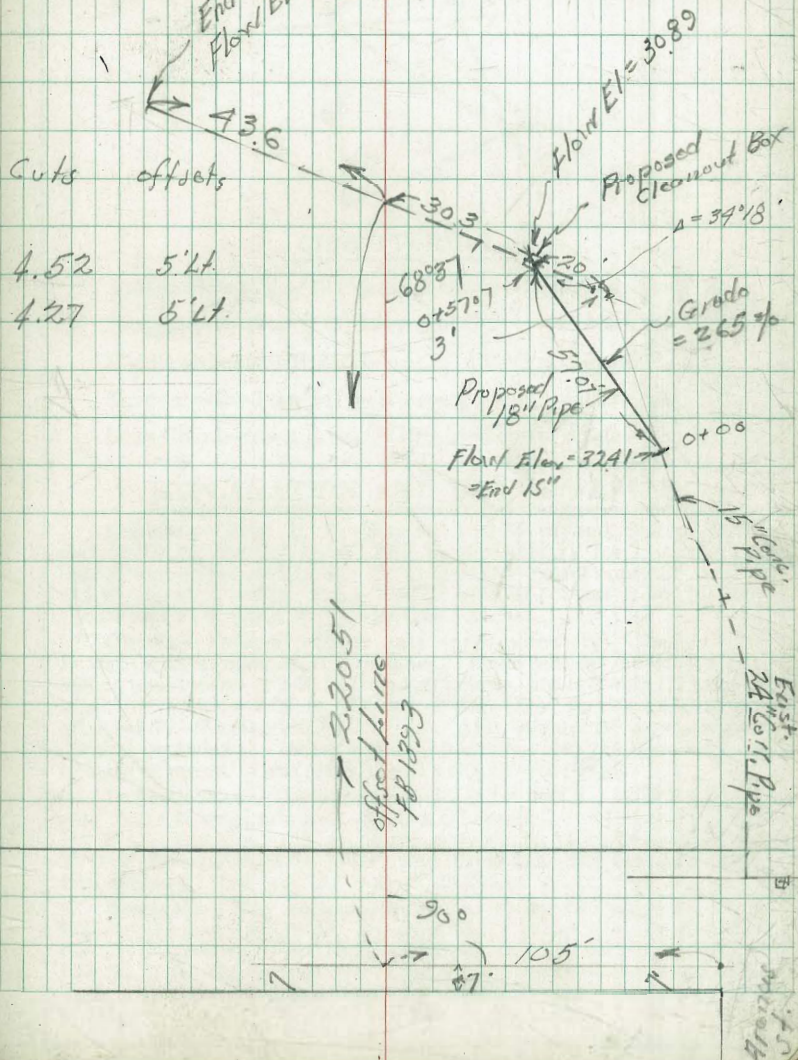 End
Flow El
43.6
Flow El = 30.89
Proposed
Cleanout Box
Δ = 34°18
Cuts offsets
30.3
20
4.52 5'Lt.
4.27 5'Lt.
68°37
0+57.07
3'
Grade
= 2.65%
57.07
Proposed
18" Pipe
0+00
Flow Elev = 32.41
= End 15"
15" Conc.
Pipe
220.51
offset line
FB 1393
Exist.
24" Corr. Pipe
90°
105'
7'
7
7'